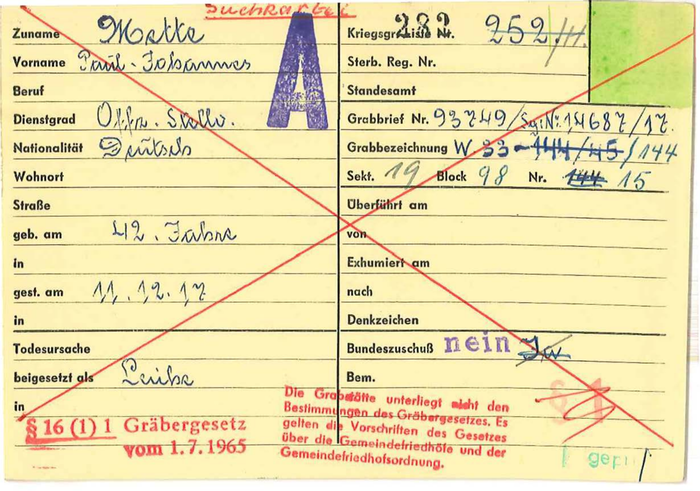 Suchkartei
Zuname Mette
Vorname Paul-Johannes
Beruf
Dienstgrad Offz. Stellv.
Nationalität Deutsch
Wohnort
Straße
geb. am 42. Jahre
in
gest. am 11.12.17
in
Todesursache
beigesetzt als Leiche
in
§ 16 (1) 1 Gräbergesetz
vom 1.7.1965
A
Kriegsgr. Nr. 252/II.
282
Sterb. Reg. Nr.
Standesamt
Grabbrief Nr. 93749/ 14687/17.
Grabbezeichnung W. 33-144/45/144
Sekt. 19 Block 98 Nr. 144 15
Überführt am
von
Exhumiert am
nach
Denkzeichen
Bundeszuschuß nein Ja
Bem.
Die Grabstätte unterliegt nicht den
Bestimmungen des Gräbergesetzes. Es
gelten die Vorschriften des Gesetzes
über die Gemeindefriedhöfe und der
Gemeindefriedhofsordnung.
§ 1